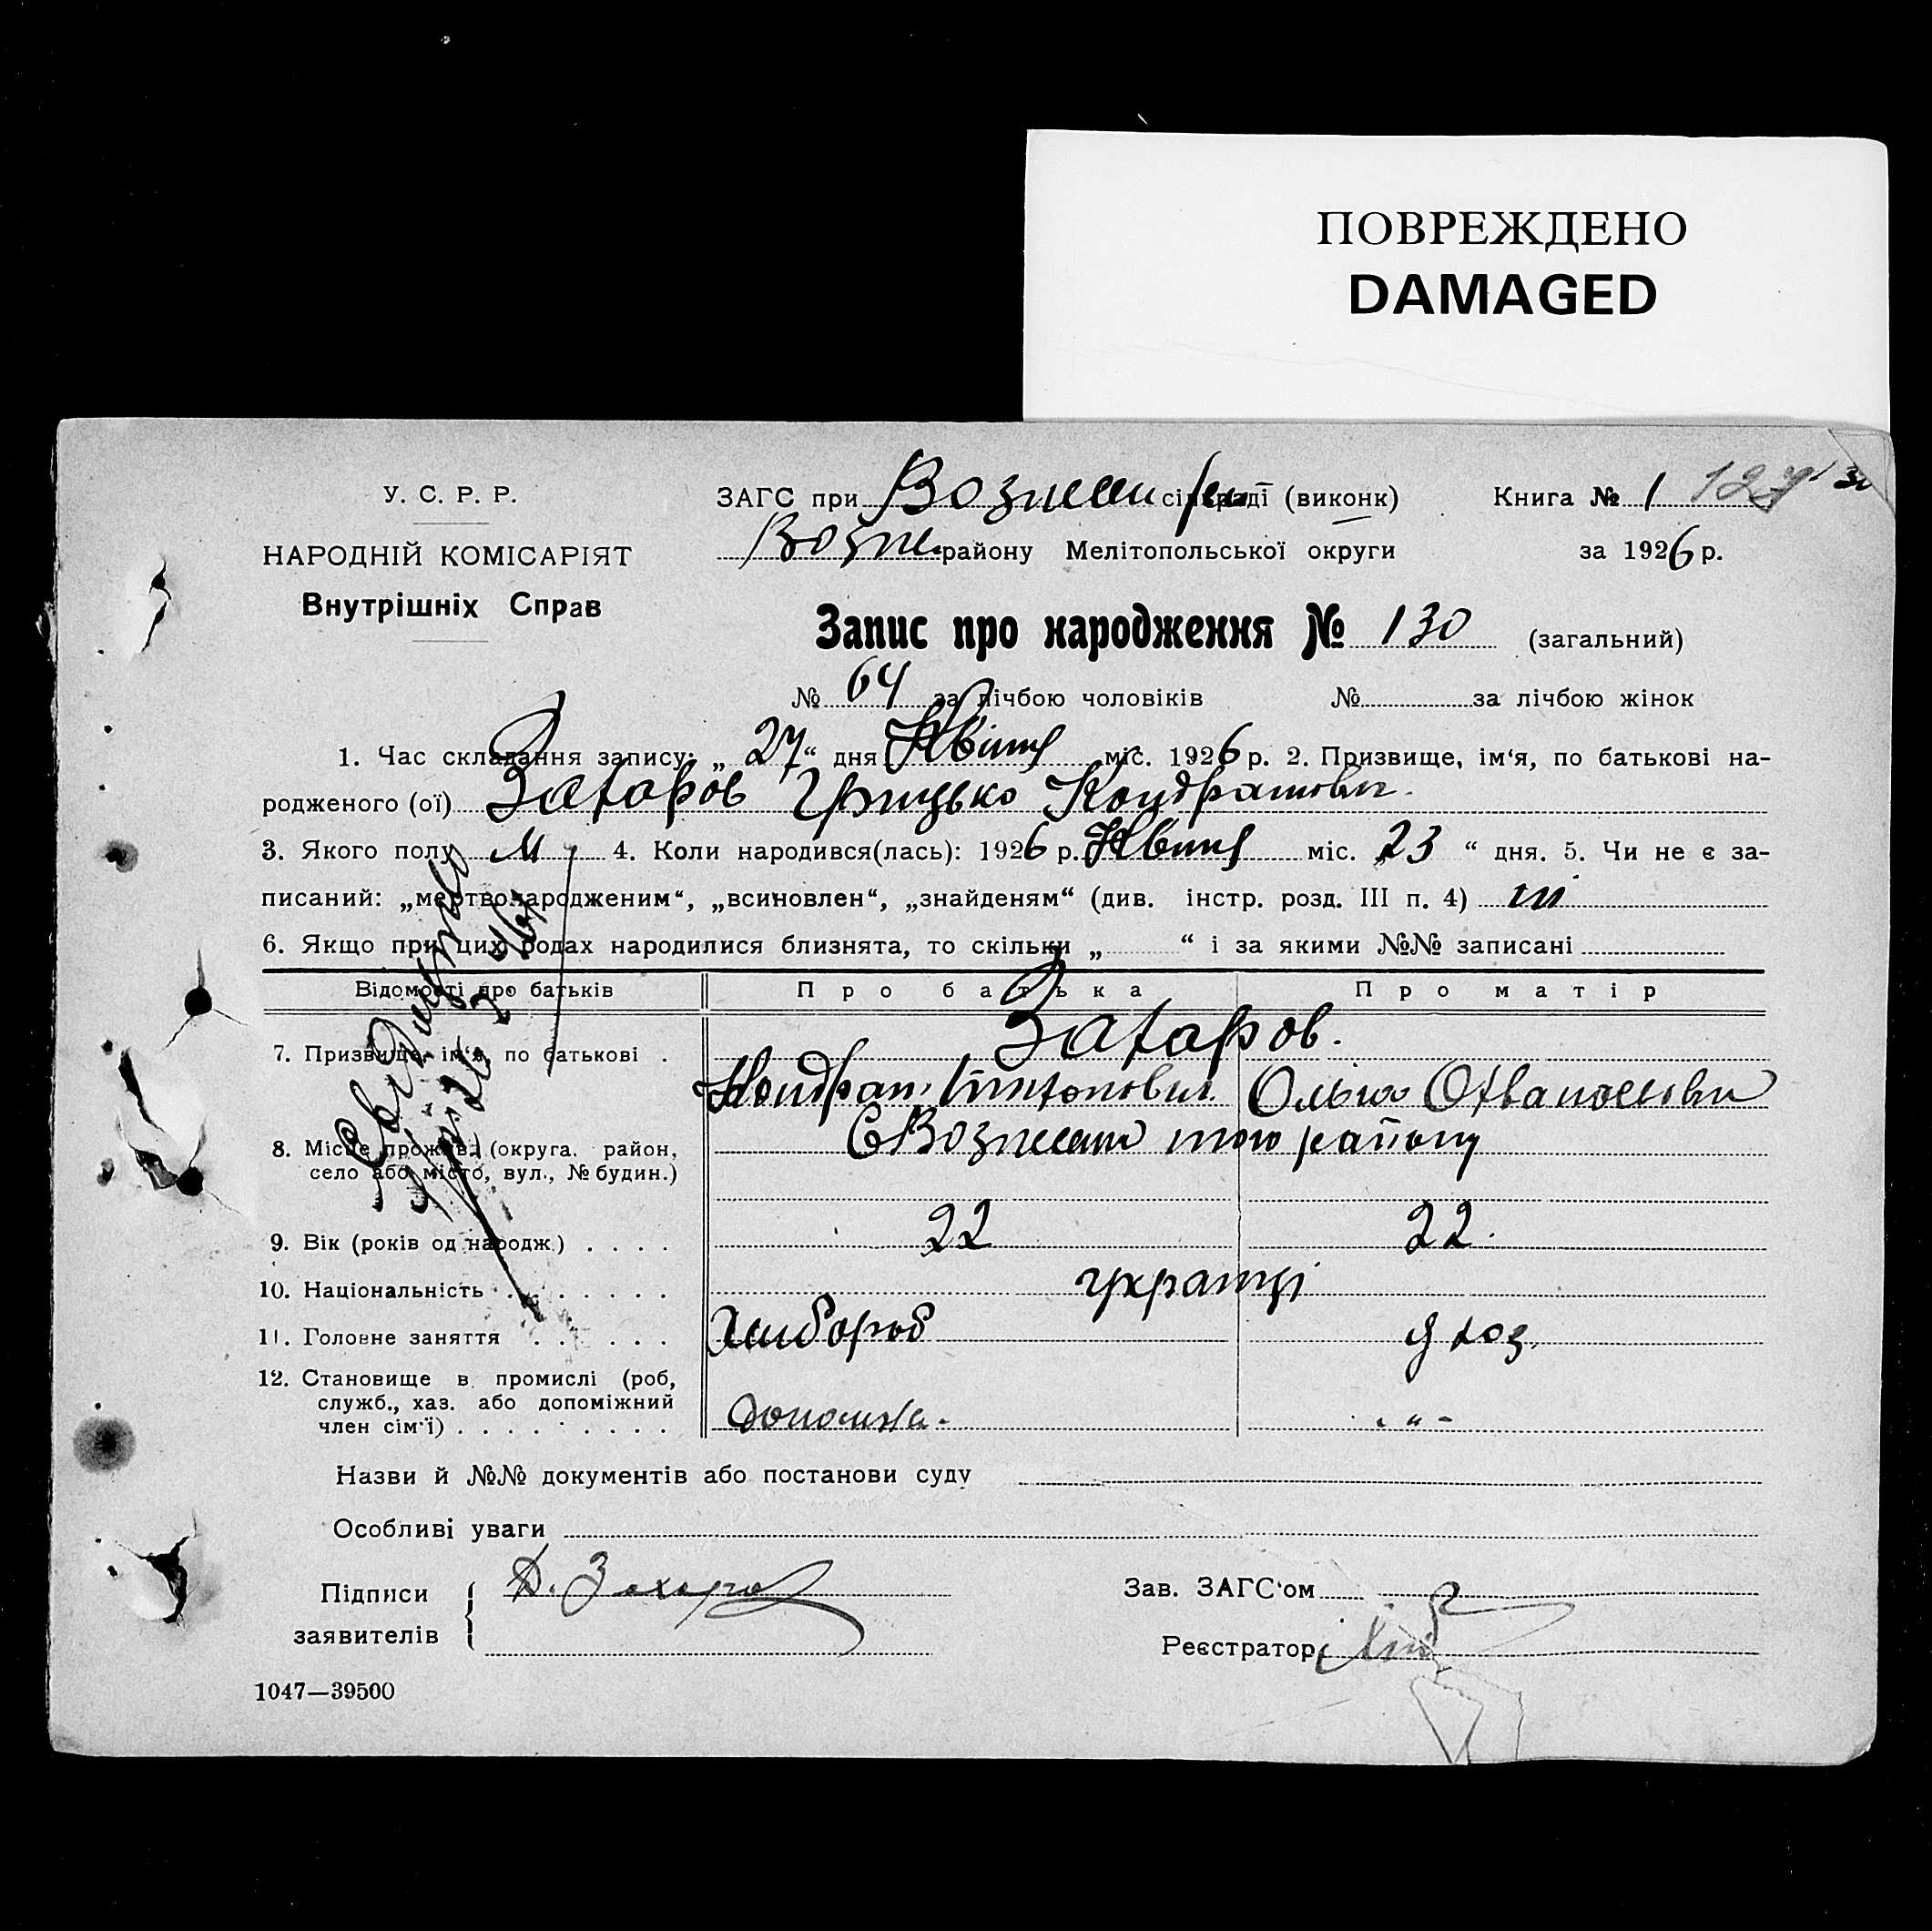 ПОВРЕЖДЕНО
DAMAGED
У. С. Р. Р.
НАРОДНІЙ КОМІСАРІЯТ
Внутрішніх Справ
ЗАГС при Вознесен сільраді (виконк) Книга № 1
Возне. району Мелітопольської округи за 1926 р.
Запис про народження № 130 (загальний)
№ 64 за лічбою чоловіків № за лічбою жінок
1. Час складання запису: „ 27 “ дня Квітня міс. 1926 р. 2. Призвище, ім‘я, по батькові на-
родженого (ої) Захаров Грицько Кондратови
3. Якого полу М 4. Коли народився(лась): 1926 р. Квітня міс. „ 23 “ дня. 5. Чи не є за-
писаний: „мертвонародженим“, „всиновлен“, „знайденям“ (див. інстр. розд. III п. 4) ні
6. Якщо при цих родах народилися близнята, то скільки „ “ і за якими №№ записані
Відомості про батьків Про батька Про матір
Захаров.
7. Призвище, ім‘я, по батькові .
Кондрат Ольга
8. Місце прожив. (округа. район,
село або місто, вул., № будин.)
С Вознесен того району
9. Вік (років од народж.) . . . . 22 22.
10. Національність . . . . . . . українці
11. Головне заняття . . . . . . Хлібороб д хоз.
12. Становище в промислі (роб,
служб., хаз. або допоміжний
член сім‘ї) . . . . . . . . .
допомжа. - " -
Назви й №№ документів або постанови суду
Особливі уваги
Підписи
заявителів
К. Захаров
Зав. ЗАГС‘ом
Реєстратор
1047—39500